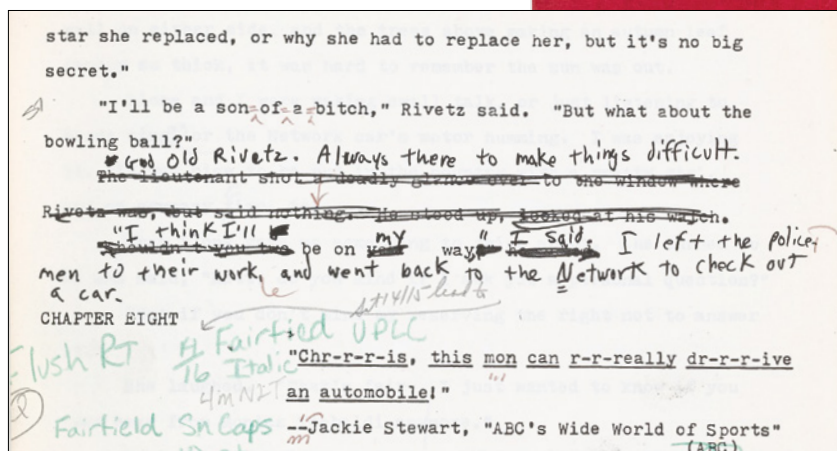 star she replaced, or why she had to replace her, but it's no big
secret."
"I'll be a son of a bitch," Rivetz said. "But what about the
bowling ball?"
Good Old Rivetz. Always there to make things difficult.
The lieutenant shot a deadly glance over to the window where
Rivetz was, but said nothing. He stood up, looked at his watch.
"I think I'll
my " I said. I left the police-
Shouldn't you two be on way
men to their work, and went back to the Network to check out
a car.
CHAPTER EIGHT
Flush RT
Fairfield UPLC
16 Italic
"Chr-r-r-is, this mon can r-r-really dr-r-r-ive
an automobile!"
Fairfield Sn Caps
--Jackie Stewart, "ABC's Wide World of Sports"
(ABC)